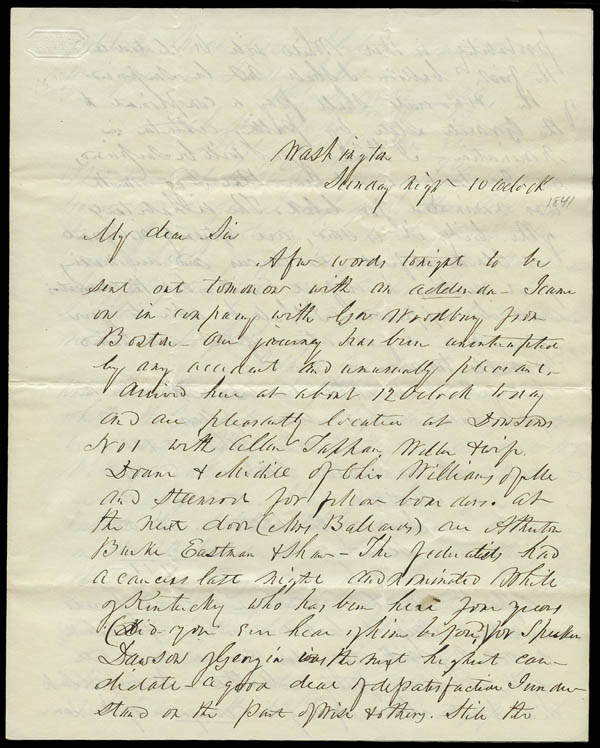 Washington
Sunday night 10 oclock
1841
My dear Sir
A few words tonight to be
sent out tomorrow with an addenda - I came
on in company with Gov Woodbury from
Boston - Our journey has been uninterrupted
by any accident and unusually pleasant.
Arrived here at about 12 Oclock today
and are pleasantly located at Dowsons
No 1 with Allen Tappan, Weller & wife
Doane & Medill of Ohio Williams of
and Steenrod for fellow boarders. at
the next door (Mrs Ballards) are Atherton
Burke Eastman & Shaw - The federalists had
a caucus last night and nominated White
of Kentucky who has been here four years
(Did you ever hear of him before) for Speaker
Dawson of Georgia was the next highest can-
didate - a good deal of dissatisfaction I under-
stand on the part of Wise & others. Still the